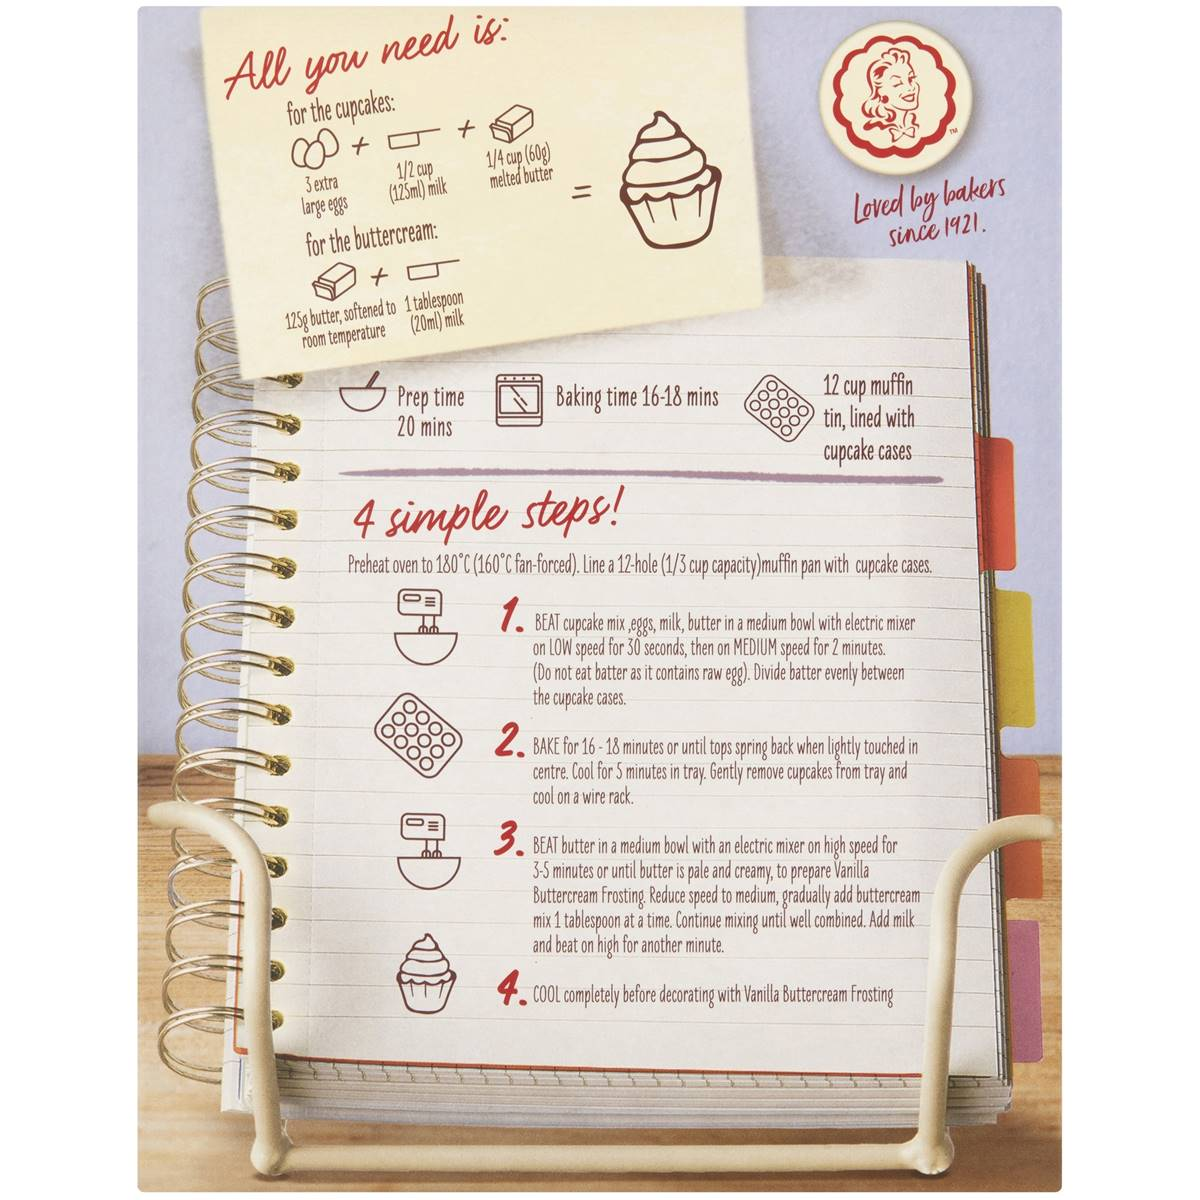 All you need is:
for the cupcakes:
3 extra
large eggs
+
1/2 cup
(125ml) milk
+
1/4 cup (60g)
melted butter
=
for the buttercream:
125g butter, softened to
room temperature
+
1 tablespoon
(20ml) milk
TM
Loved by bakers
since 1921.
Prep time
20 mins
Baking time 16-18 mins
12 cup muffin
tin, lined with
cupcake cases
4 simple steps!
Preheat oven to 180°C (160°C fan-forced). Line a 12-hole (1/3 cup capacity)muffin pan with cupcake cases.
1. BEAT cupcake mix ,eggs, milk, butter in a medium bowl with electric mixer
on LOW speed for 30 seconds, then on MEDIUM speed for 2 minutes.
(Do not eat batter as it contains raw egg). Divide batter evenly between
the cupcake cases.
2. BAKE for 16 - 18 minutes or until tops spring back when lightly touched in
centre. Cool for 5 minutes in tray. Gently remove cupcakes from tray and
cool on a wire rack.
3. BEAT butter in a medium bowl with an electric mixer on high speed for
3-5 minutes or until butter is pale and creamy, to prepare Vanilla
Buttercream Frosting. Reduce speed to medium, gradually add buttercream
mix 1 tablespoon at a time. Continue mixing until well combined. Add milk
and beat on high for another minute.
4. COOL completely before decorating with Vanilla Buttercream Frosting